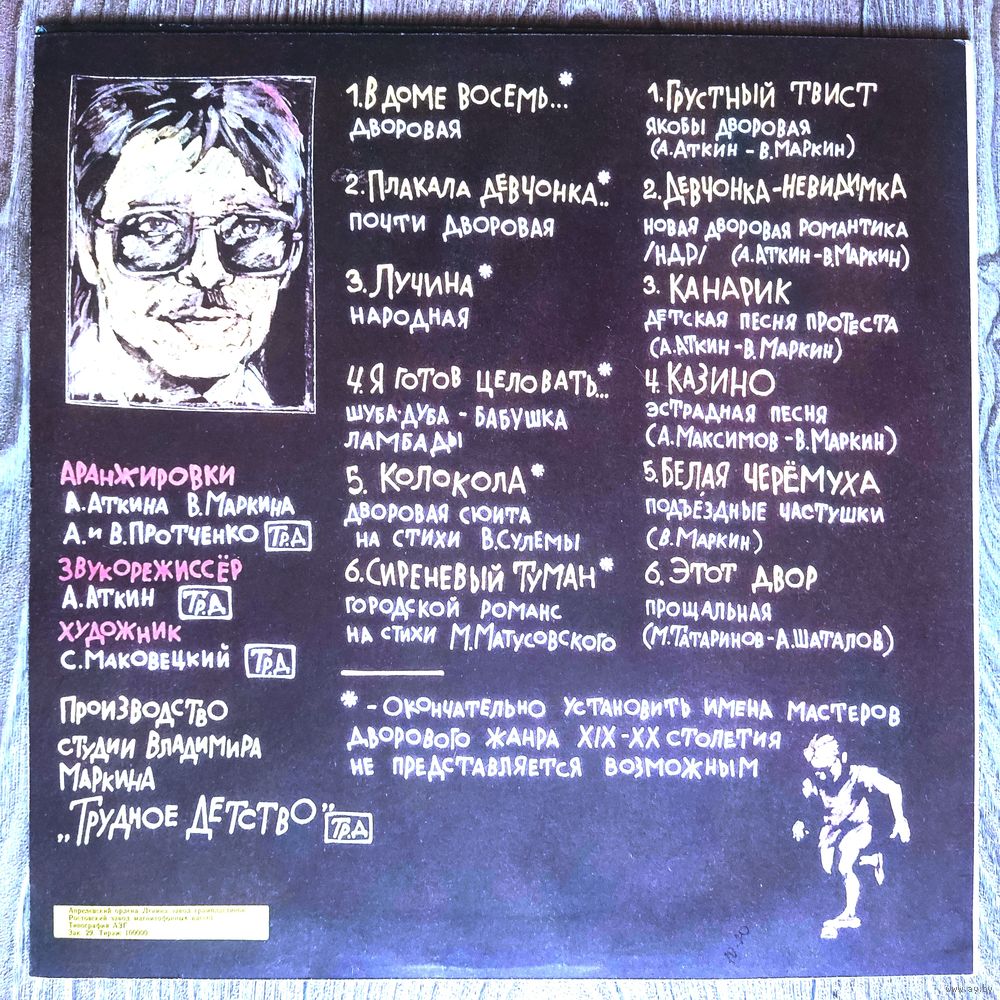 1. В ДОМЕ ВОСЕМЬ...*
ДВОРОВАЯ
2. ПЛАКАЛА ДЕВЧОНКА..*
ПОЧТИ ДВОРОВАЯ
3. ЛУЧИНА*
НАРОДНАЯ
4. Я ГОТОВ ЦЕЛОВАТЬ...*
ШУБА-ДУБА - БАБУШКА
ЛАМБАДЫ
5. КОЛОКОЛА*
ДВОРОВАЯ СЮИТА
НА СТИХИ В.СУЛЕМЫ
6. СИРЕНЕВЫЙ ТУМАН*
ГОРОДСКОЙ РОМАНС
НА СТИХИ М.МАТУСОВСКОГО
1. ГРУСТНЫЙ ТВИСТ
ЯКОБЫ ДВОРОВАЯ
(А.АТКИН - В.МАРКИН)
2. ДЕВЧОНКА-НЕВИДИМКА
НОВАЯ ДВОРОВАЯ РОМАНТИКА
/НДР/ (А.АТКИН-В.МАРКИН)
3. КАНАРИК
ДЕТСКАЯ ПЕСНЯ ПРОТЕСТА
(А.АТКИН-В.МАРКИН)
4. КАЗИНО
ЭСТРАДНАЯ ПЕСНЯ
(А.МАКСИМОВ-В.МАРКИН)
5. БЕЛАЯ ЧЕРЁМУХА
ПОДЪЕЗДНЫЕ ЧАСТУШКИ
(В.МАРКИН)
6. ЭТОТ ДВОР
ПРОЩАЛЬНАЯ
(М.ТАТАРИНОВ-А.ШАТАЛОВ)
* - ОКОНЧАТЕЛЬНО УСТАНОВИТЬ ИМЕНА МАСТЕРОВ
ДВОРОВОГО ЖАНРА XIX-XX СТОЛЕТИЯ
НЕ ПРЕДСТАВЛЯЕТСЯ ВОЗМОЖНЫМ
АРАНЖИРОВКИ
А.АТКИНА В.МАРКИНА
А. И В.ПРОТЧЕНКО ТР.Д
ЗВУКОРЕЖИССЁР
А.АТКИН ТР.Д
ХУДОЖНИК
С.МАКОВЕЦКИЙ ТР.Д
ПРОИЗВОДСТВО
СТУДИИ ВЛАДИМИРА
МАРКИНА
„ТРУДНОЕ ДЕТСТВО” ТР.Д
Апрелевский ордена Ленина завод грампластинок
Ростовский завод магнитофонных кассет
Типография АЗГ
Зак. 29. Тираж 100000
www.ay.by